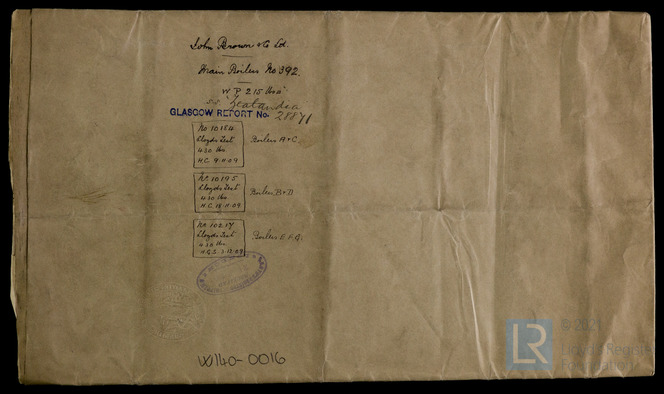 John Brown & Co Ld.
Main Boilers No 392.
W P 215 lbs
S.S. Zealandia
GLASGOW REPORT No. 28871
No 10184
Lloyds Test
430 lbs
H.C. 9.11.09
Boilers A & C
No 10195
Lloyds Test
430 lbs
H.C. 18.11.09
Boilers B & D
No 10217
Lloyds Test
430 lbs
Boilers E.F.G.
W140-0016
LR
© 2021
Lloyd's Register
Foundation